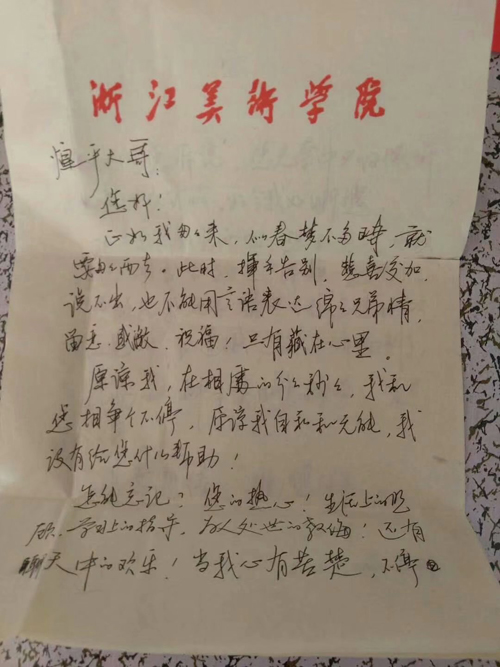 浙江美術学院
平大哥:
您好!
正如我匆匆来,似春梦不多時,就
要匆匆而去。此时,揮手告别,悲喜交加,
说不出,也不能用言语表达 兄弟情,
感激、祝福!只有藏在心里。
原谅我,在相處的分分秒秒,我和
您相争个不停,原谅我自私和无能,我
没有给您什么帮助!
怎能忘记?您的热心!生活上的照
顾、学习上的指导,为人处世的教诲!还有
聊天中的欢乐!当我心有苦楚,不停